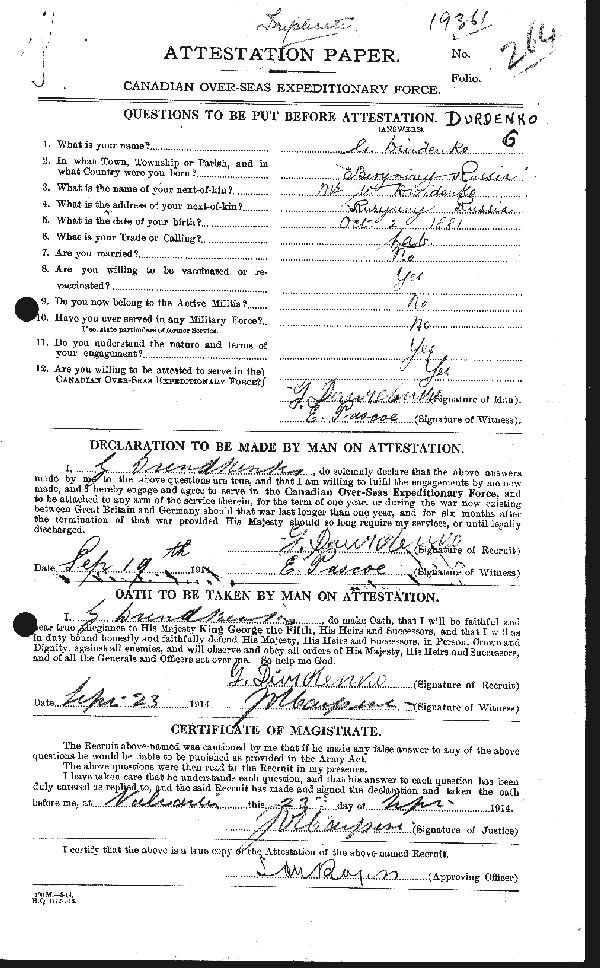 Triplicate
19361
264
ATTESTATION PAPER.
No.
Folio.
CANADIAN OVER-SEAS EXPEDITIONARY FORCE.
QUESTIONS TO BE PUT BEFORE ATTESTATION.
DURDENKO
G
(ANSWERS)
1. What is your name?
2. In what Town, Township or Parish, and in what Country were you born?
Russia
3. What is the name of your next-of-kin?
4. What is the address of your next-of-kin?
Russia
5. What is the date of your birth?
Oct 2 1881
6. What is your Trade or Calling?
Lab
7. Are you married?
No
8. Are you willing to be vaccinated or re-vaccinated?
Yes
9. Do you now belong to the Active Militia?
No
10. Have you ever served in any Military Force?
If so, state particulars of former Service.
No
11. Do you understand the nature and terms of your engagement?
Yes
12. Are you willing to be attested to serve in the CANADIAN OVER-SEAS EXPEDITIONARY FORCE?
Yes
(Signature of Man).
E. Pascoe (Signature of Witness).
DECLARATION TO BE MADE BY MAN ON ATTESTATION.
I, G , do solemnly declare that the above answers
made by me to the above questions are true, and that I am willing to fulfil the engagements by me now
made, and I hereby engage and agree to serve in the Canadian Over-Seas Expeditionary Force, and
to be attached to any arm of the service therein, for the term of one year, or during the war now existing
between Great Britain and Germany should that war last longer than one year, and for six months after
the termination of that war provided His Majesty should so long require my services, or until legally
discharged.
(Signature of Recruit)
Date Sep 19th 191 E. Pascoe (Signature of Witness)
OATH TO BE TAKEN BY MAN ON ATTESTATION.
I, G , do make Oath, that I will be faithful and
bear true Allegiance to His Majesty King George the Fifth, His Heirs and Successors, and that I will as
in duty bound honestly and faithfully defend His Majesty, His Heirs and Successors, in Person, Crown and
Dignity, against all enemies, and will observe and obey all orders of His Majesty, His Heirs and Successors,
and of all the Generals and Officers set over me. So help me God.
(Signature of Recruit)
Date Sept 23 1914 (Signature of Witness)
CERTIFICATE OF MAGISTRATE.
The Recruit above-named was cautioned by me that if he made any false answer to any of the above
questions he would be liable to be punished as provided in the Army Act.
The above questions were then read to the Recruit in my presence.
I have taken care that he understands each question, and that his answer to each question has been
duly entered as replied to, and the said Recruit has made and signed the declaration and taken the oath
before me, at Valcartier this 23rd day of Sept 1914.
(Signature of Justice)
I certify that the above is a true copy of the Attestation of the above-named Recruit.
(Approving Officer)